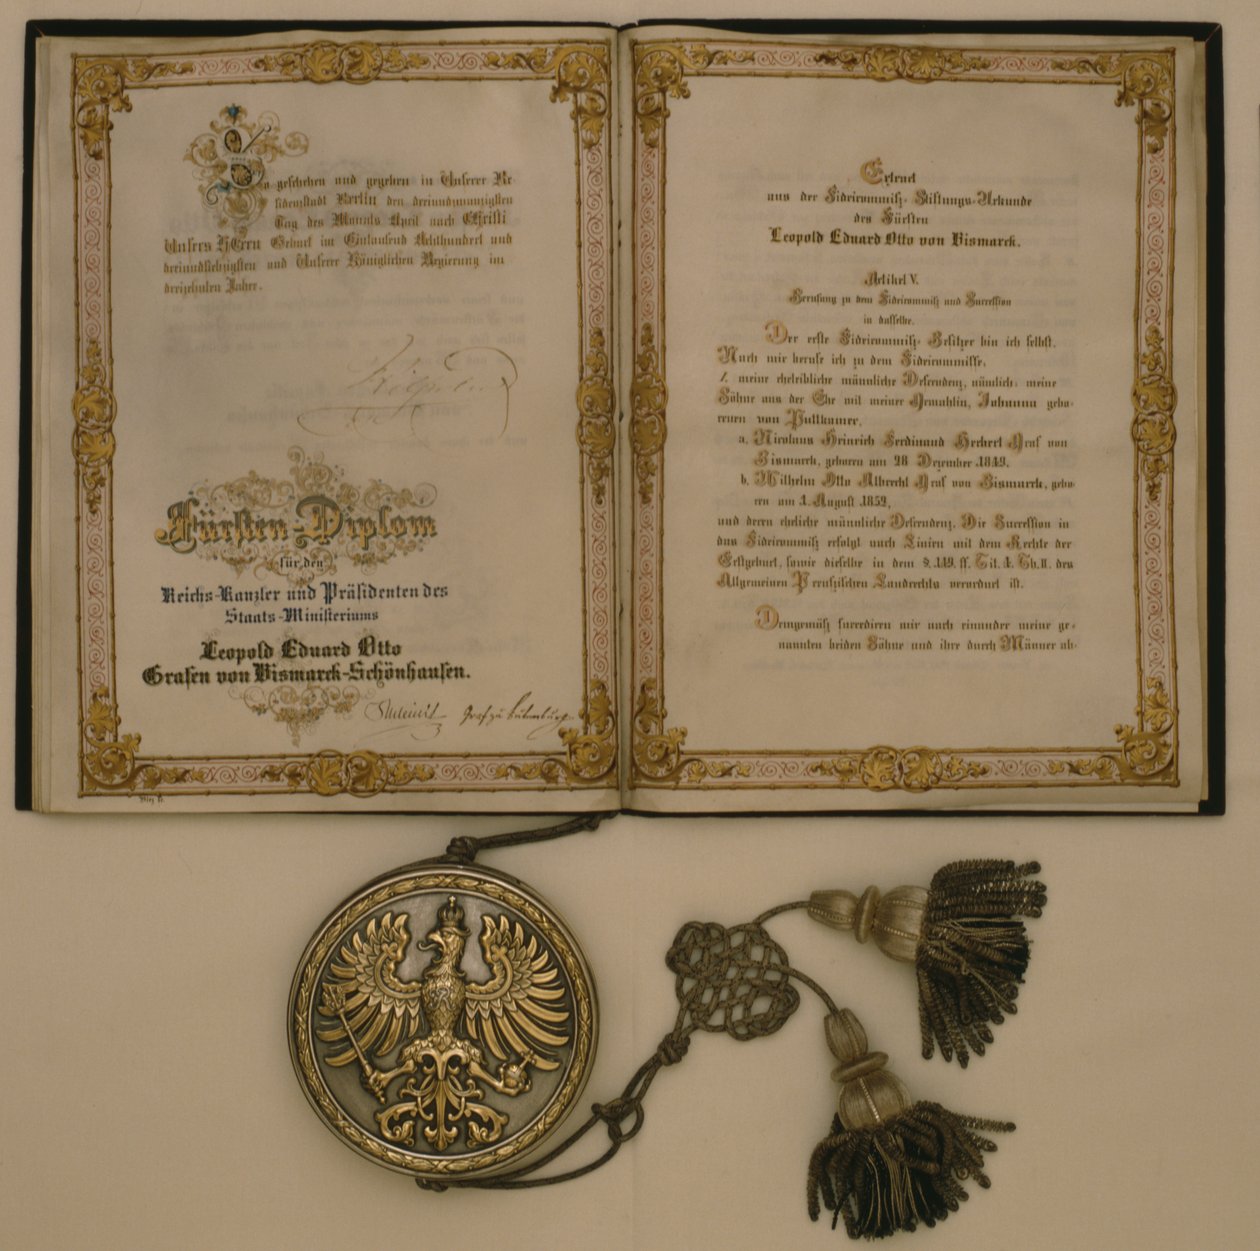 So geschehen und gegeben in Unserer Re-
sidenzstadt Berlin den dreiundzwanzigsten
Tag des Monats April nach Christi
Unsers HErrn Geburt im Eintausend Achthundert und
dreiundsiebzigsten und Unserer Königlichen Regierung im
dreizehnten Jahre.
Wilhelm
Fürsten-Diplom
für den
Reichs-Kanzler und Präsidenten des
Staats-Ministeriums
Leopold Eduard Otto
Grafen von Bismarck-Schönhausen.
Graf zu Eulenburg
Extract
aus der Fideicommiß-Stiftungs-Urkunde
des Fürsten
Leopold Eduard Otto von Bismarck.
Artikel V.
Berufung zu dem Fideicommiß und Succession
in dasselbe.
Der erste Fideicommiß-Besitzer bin ich selbst.
Nach mir berufe ich zu dem Fideicommisse,
1. meine eheleibliche männliche Descendenz, nämlich: meine
Söhne aus der Ehe mit meiner Gemahlin, Johanna gebo-
renen von Puttkamer,
a. Nicolaus Heinrich Ferdinand Herbert Graf von
Bismarck, geboren am 28 Dezember 1849,
b. Wilhelm Otto Albrecht Graf von Bismarck, gebo-
ren am 1. August 1852,
und deren eheliche männliche Descendenz. Die Succession in
das Fideicommiß erfolgt nach Linien mit dem Rechte der
Erstgeburt, sowie dieselbe in dem §. 149. ff. Tit. 4. Th. II. des
Allgemeinen Preußischen Landrechts verordnet ist.
Demgemäß succediren mir nach einander meine ge-
nannten beiden Söhne und ihre durch Männer ab-